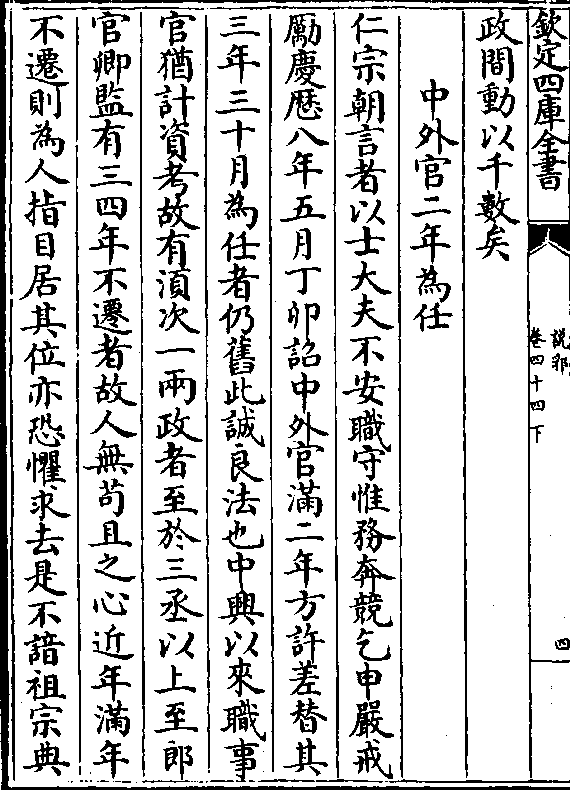 欽定四庫全書
說郛
卷四十四下
四
政間動以千數矣
中外官二年為任
仁宗朝言者以士大夫不安職守惟務奔競乞申嚴戒
勵慶厯八年五月丁卯詔中外官滿二年方許差替其
三年三十月為任者仍舊此誠良法也中興以來職事
官猶計資考故有湏次一兩政者至於三丞以上至郎
官卿監有三四年不遷者故人無苟且之心近年滿年
不遷則為人指目居其位亦恐懼求去是不諳祖宗典